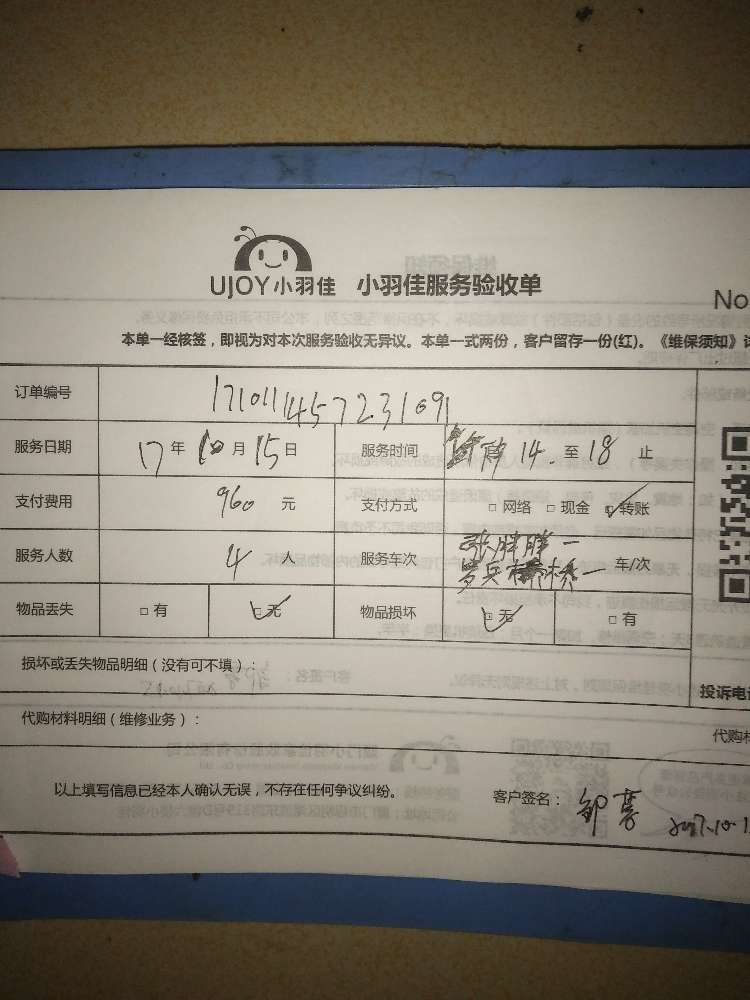 UJOY小羽佳 小羽佳服务验收单
No
本单一经核签，即视为对本次服务验收无异议。本单一式两份，客户留存一份(红)。《维保须知》
订单编号 171011457231691
服务日期 17 年 10 月 15 日 服务时间 14. 至 18 止
支付费用 960 元 支付方式 □ 网络 □ 现金 □ 转账
服务人数 4 人 服务车次 张胖胖一
罗兵 桥一 车/次
物品丢失 □ 有 □ 无 物品损坏 □ 无 □ 有
损坏或丢失物品明细（没有可不填）：
投诉电
代购材料明细（维修业务）：
代购
以上填写信息已经本人确认无误，不存在任何争议纠纷。 客户签名： 邹 2017.10.1